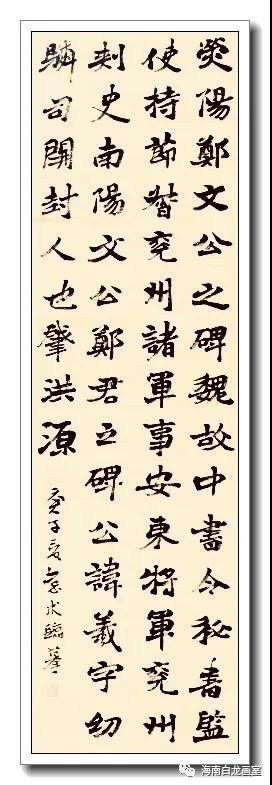 熒陽鄭文公之碑魏故中書令秘書監
使持節督兗州諸軍事安東將軍兗州
刺史南陽文公鄭君之碑公諱羲字幼
驎司開封人也肇洪源
庚子夏水臨摹
海南白龙画室